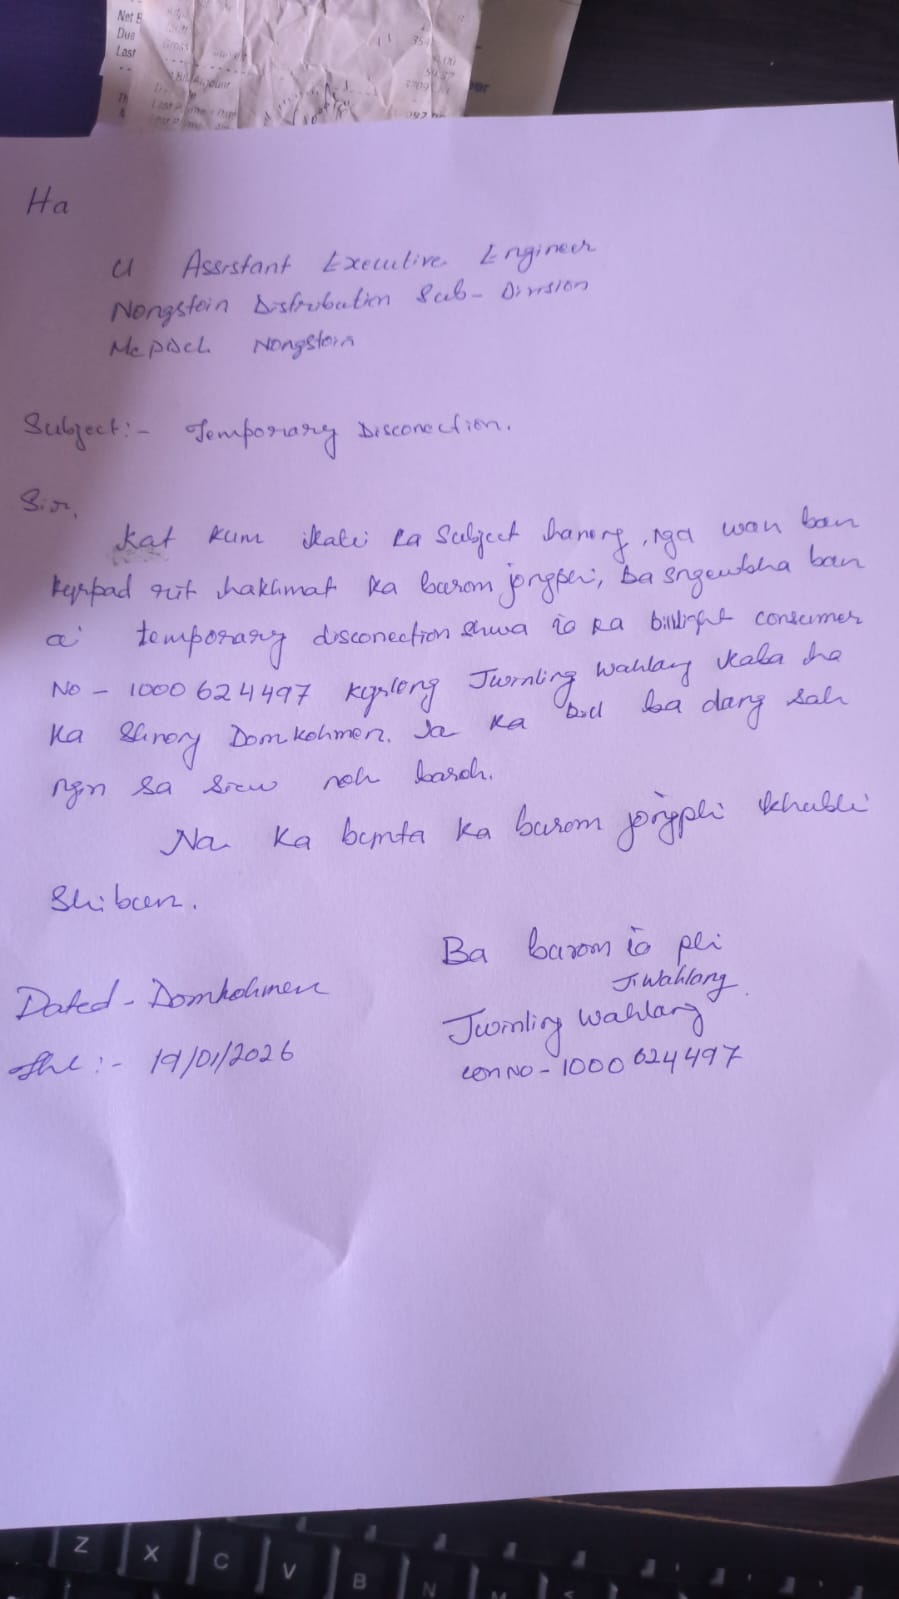 Net B
Due
Last
Ha
U Assistant Executive Engineer
Nongstoin Distribution Sub-Division
MePDCL Nongstoin
Subject:- Temporary Disconection.
Sir,
Kat kum kali ka Subject haneng, nga wan ban
kyrpad rit hakhmat ka burom jongphi, ba sngewbha ban
ai temporary disconection shwa ïo ka billight consumer
No - 1000624497 kyrteng Jwinling Wahlang kaba ha
ka Shnong Domkohmen. Ïa ka bill ba dang sah
ngin sa siew noh baroh.
Na ka bynta ka burom jongphi khublei
Shibun.
Ba burom ïo phi
J. Wahlang
Dated - Domkohmen
Jwinling Wahlang
The :- 19/01/2026
con NO - 1000624497
Z X C V B N